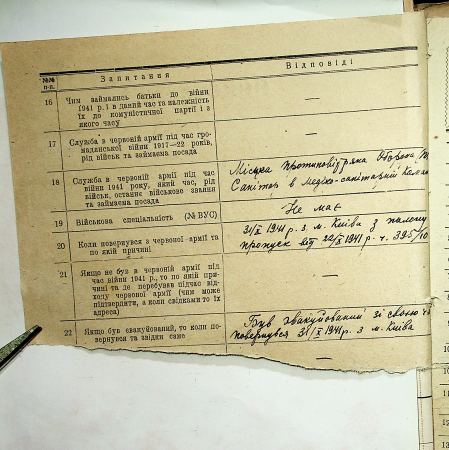 №№ п-п.
Запитання
Відповіді
16
Чим займались батьки до війни
1941 р. і в даний час та належність
їх до комуністичної партії і з
якого часу
—
17
Служба в червоній армії під час гро-
мадянської війни 1917—22 років,
рід військ та займаєма посада
—
18
Служба в червоній армії під час
війни 1941 року, який час, рід
військ, останнє військове звання
та займаєма посада
Міська протиповітряна Оборона
Санітар в Медико-санітарній
19
Військова спеціальність (№ ВУС)
Не має
20
Коли повернувся з червоної армії та
по якій причині
31/X 1941 р. з м. Київа з
пропуск від 22/X 1941 р. ч. 395/10
21
Якщо не був в червоній армії під
час війни 1941 р., то по якій при-
чині та де перебував підчас від-
ходу червоної армії (чим може
підтвердити, а коли свідками то їх
адреса)
—
22
Якщо був евакуйований, то коли по-
вернувся та звідки саме
Був евакуйований зі своєю
повернувся 31/X 1941 р. з м. Київа
—
10
11
12
13